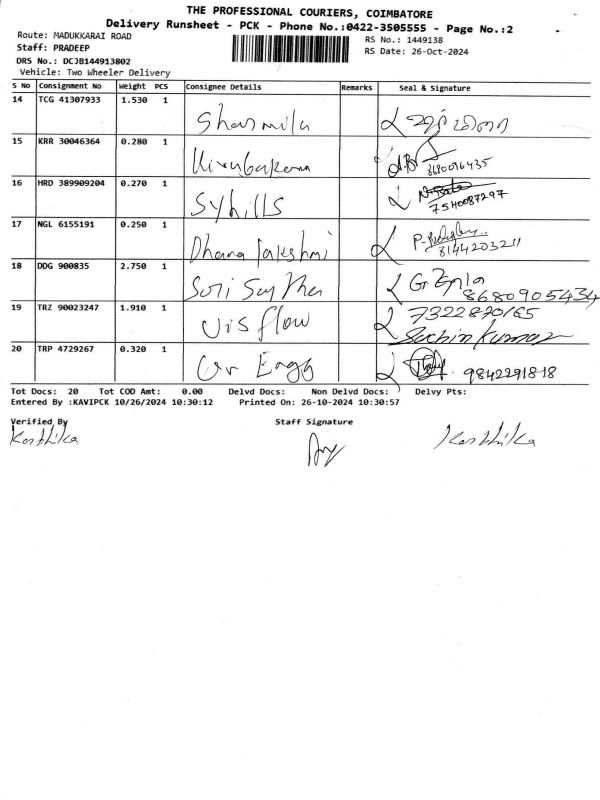 THE PROFESSIONAL COURIERS, COIMBATORE
Delivery Runsheet - PCK - Phone No.:0422-3505555 - Page No.:2
Route: MADUKKARAI ROAD
RS No.: 1449138
Staff: PRADEEP
RS Date: 26-Oct-2024
DRS No.: DCJB144913802
Vehicle: Two Wheeler Delivery
S No Consignment No Weight PCS Consignee Details Remarks Seal & Signature
14 TCG 41307933 1.530 1 Sharmila
15 KRR 30046364 0.280 1 Kirubakaran 8680096435
16 HRD 389909204 0.270 1 Syhills
7540087297
17 NGL 6155191 0.250 1 Dhanalakshmi 8144203211
18 DDG 900835 2.750 1
8680905434
19 TRZ 90023247 1.910 1 Uris flow 7322870165
Sachin Kumar
20 TRP 4729267 0.320 1 Engg 9842291818
Tot Docs: 20 Tot COD Amt: 0.00 Delvd Docs: Non Delvd Docs: Delvy Pts:
Entered By :KAVIPCK 10/26/2024 10:30:12 Printed On: 26-10-2024 10:30:57
Verified By Staff Signature
Karthika Karthika